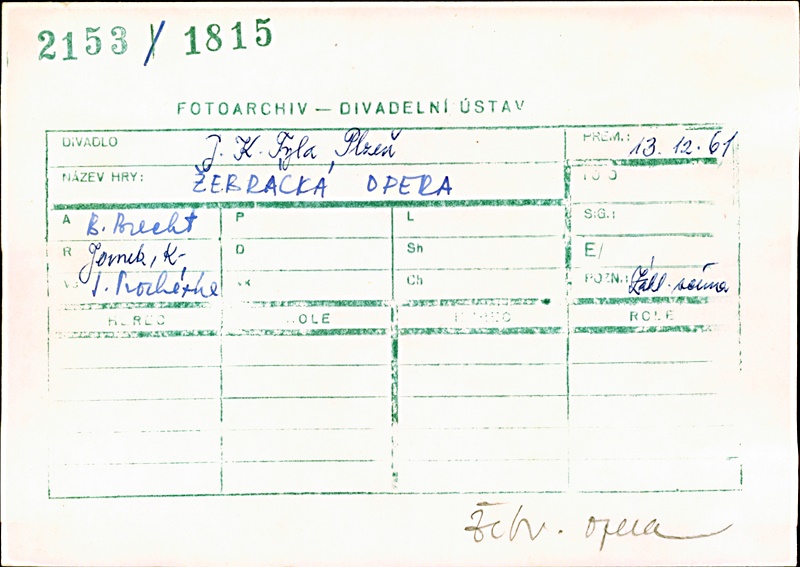 2153 / 1815
FOTOARCHIV — DIVADELNÍ ÚSTAV
DIVADLO J. K. Tyla, Plzeň PREM.: 13. 12. 61
NÁZEV HRY: ŽEBRACKÁ OPERA FOTO
A B. Brecht P L SIG.:
R K- D Sh E/
J. Procházka Ch POZN.: Zákl.
HEREC ROLE HEREC ROLE
Žebr. opera